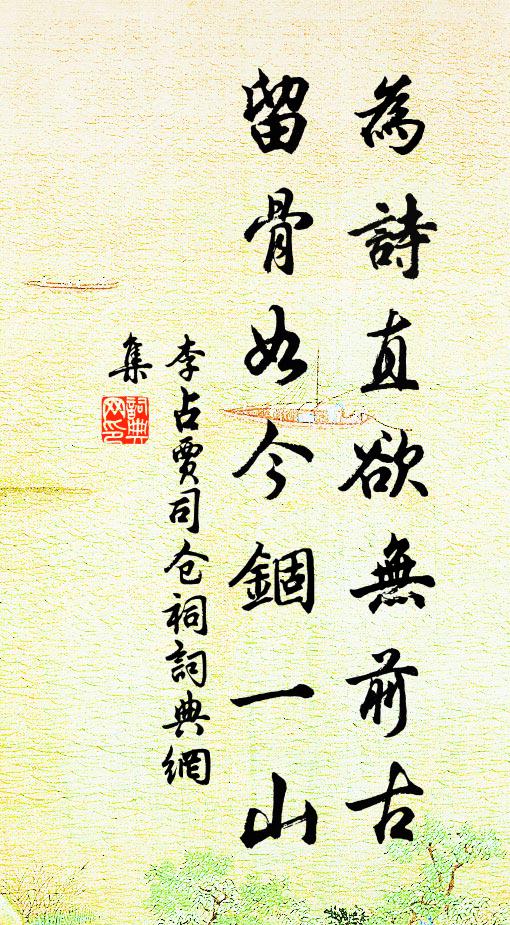 為詩直欲無前古
留骨如今錮一山
李占賈司仓祠詞典網
集
詞典
网印